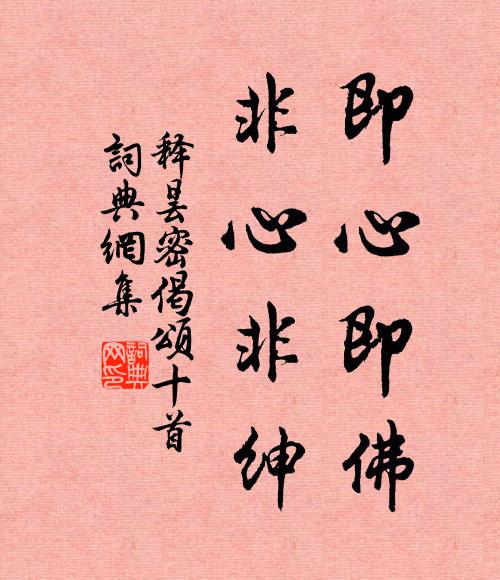 即心即佛
非心非紳
释昙密偈頌十首
詞典網集
詞典
网印